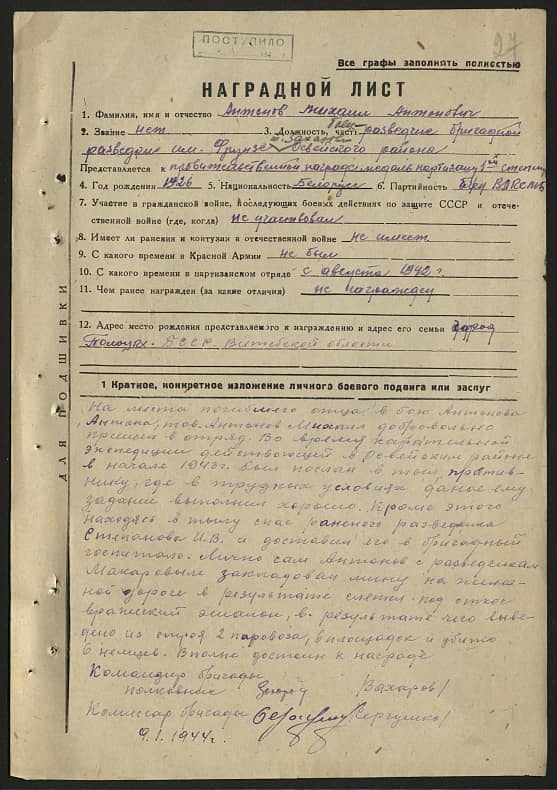 ПОСТУПИЛО
27
Все графы заполнять полностью
НАГРАДНОЙ ЛИСТ
1. Фамилия, имя и отчество Антонов Михаил Антонович
2. Звание нет 3. Должность, часть разведчик бригадной
разведки им. Фрунзе Освейского района
Представляется к правительственной награде медаль партизану 1ой степени
4. Год рождения 1926 5. Национальность Беларус 6. Партийность ВЛКСМ
7. Участие в гражданской войне, последующих боевых действиях по защите СССР и отече-
ственной войне (где, когда) не участвовал
8. Имеет ли ранения и контузии в отечественной войне не имеет
9. С какого времени в Красной Армии не был
10. С какого времени в партизанском отряде с августа 1942 г.
11. Чем ранее награжден (за какие отличия) не награжден
12. Адрес место рождения представляемого к награждению и адрес его семьи город
Полоцк. БССР Витебской области
ДЛЯ ПОДШИВКИ
1 Краткое, конкретное изложение личного боевого подвига или заслуг
На места погибшего отца в бою Антонова
Антона, тов. Антонов Михаил добровольно
пришел в отряд. Во время карательной
экспедиции действующей в Освейском районе
в начале 1943 г. был послан в тыл против-
нику, где в трудных условиях даное ему
задание выполнил хорошо. Кроме этого
находясь в тылу спас раненого разведчика
Степанова И.В. и доставил его в бригадный
госпиталь. Лично сам Антонов с разведчикам
Макаровым закладовал мину на желез-
ной дороге в результате слетел под откос
вражеский эшалон, в результате чего выве-
дено из строя 2 паровоза, 8 площадок и убито
6 немцев. Вполне достоин к награде
Командир бригады
полковник Захаров/
Комиссар бригады /Сергушко/
9.I.1944 г.